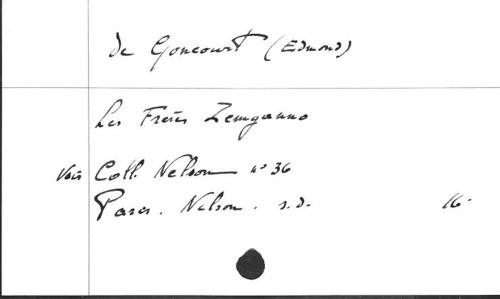 de Goncourt (Edmond)
Les Frères Zemganno
Voir Coll. Nelson n° 36
Paris. Nelson. s.d. 16°